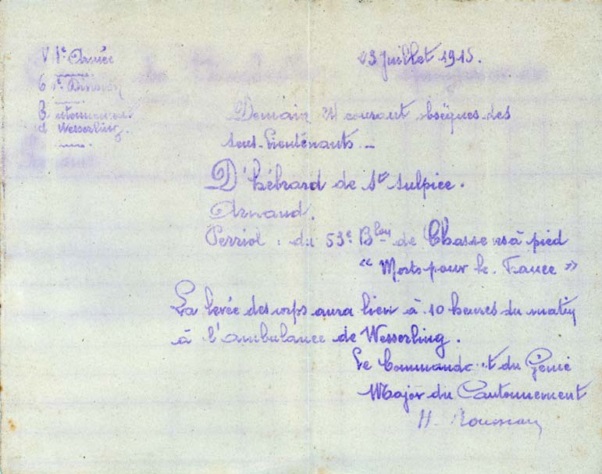 VIIe Armée
23 Juillet 1915.
Cantonnement
de Wesserling.
Demain 24 courant obsèques des
sous-Lieutenants _
D'hébrard de St Sulpice.
Arnaud.
Perriol : du 53e Blon de Chasseurs à pied
" Morts pour la France "
La levée des corps aura lieu à 10 heures du matin
à l'ambulance de Wesserling.
Le Commandant du Génie
Major du Cantonnement